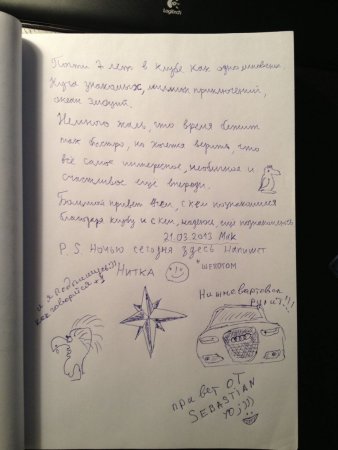 Почти 7 лет в клубе как одно мгновение.
Куча знакомых, миллион приключений,
океан эмоций.
Немного жаль, что время бежит
так быстро, но хочется верить, что
всё самое интересное, необычное и
счастливое еще впереди.
Большой привет всем, с кем познакомился
благодаря клубу и с кем, надеюсь, еще познакомлюсь
21.03.2013 Мак
P.S. Ночью сегодня здесь напишет
Нитка
*шепотом
и я подпишусь!))
как говорится +1
Нижневартовск
рулит!!!
привет от
SEBASTIAN
YO;)))
Logitech